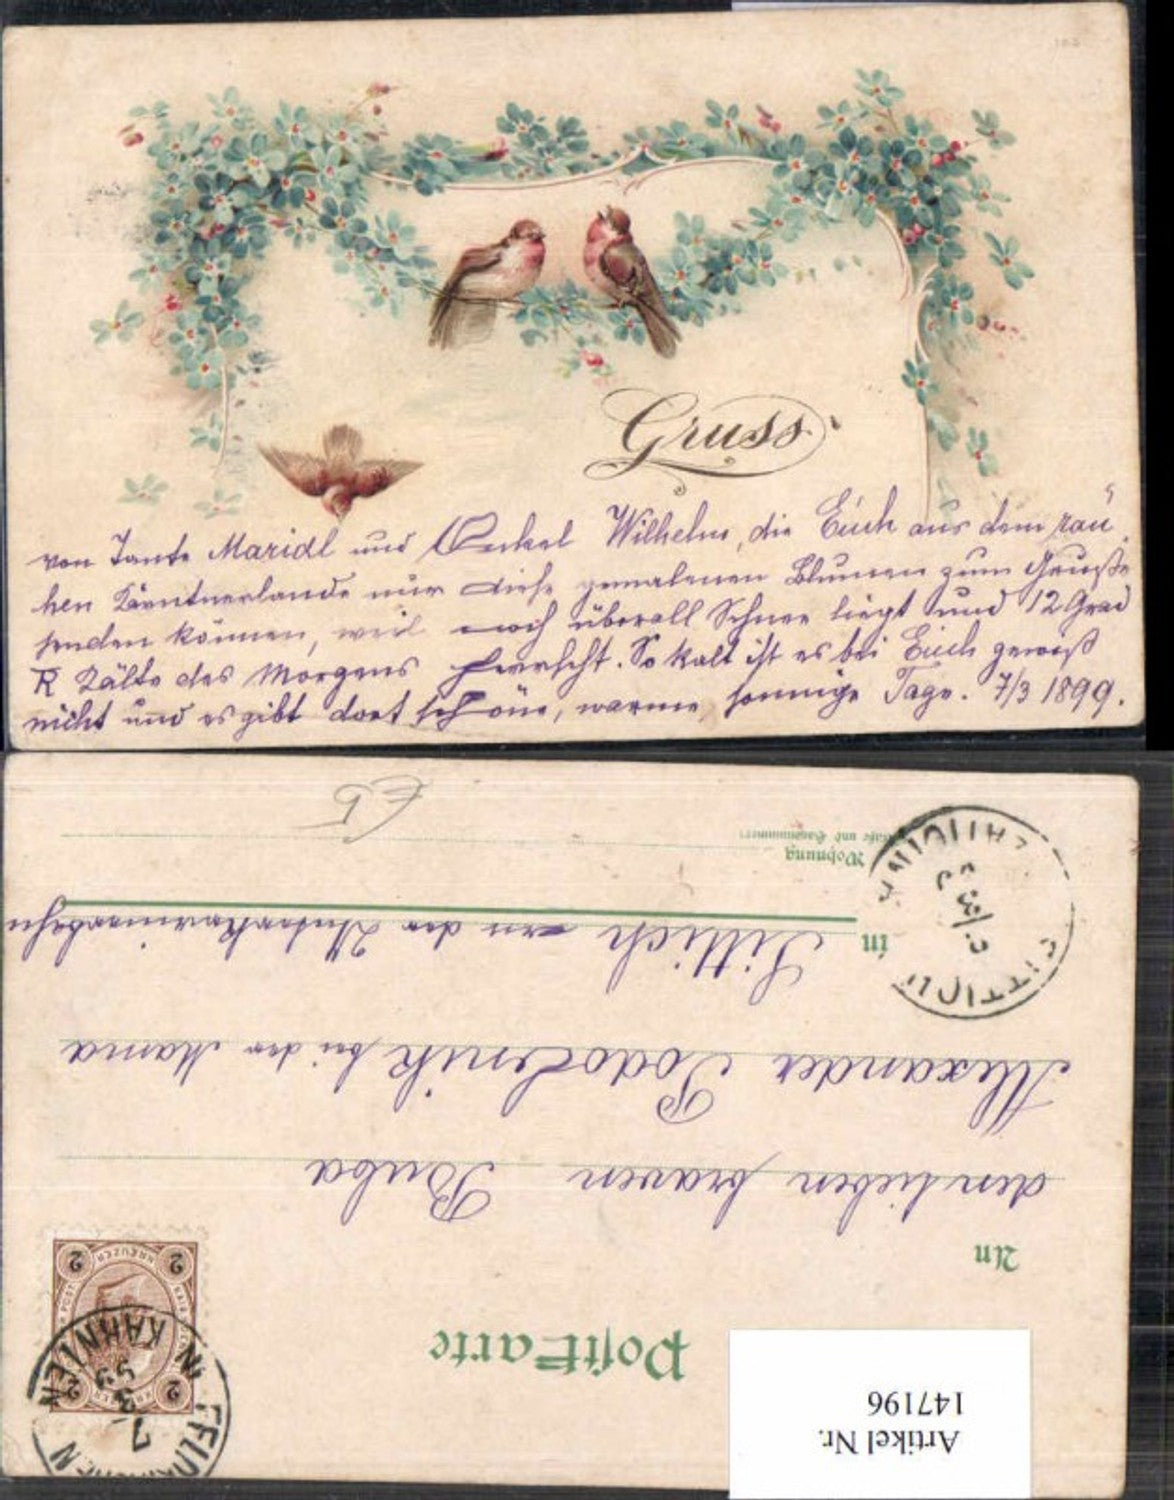 Gruss
von Tante Maridl und Onkel Wilhelm, die Euch aus dem rau„
hen Kärntnerlande nur diese gemalenen Blumen zum Gruße
senden können, weil noch überall Schnee liegt und 12 Grad
R Kälte des Morgens herrscht. So kalt ist es bei Euch gewiß
nicht und es gibt dort schöne, warme, sonnige Tage. 7/3 1899.
Artikel Nr.
147196
Postkarte
2 KREUZER 2
2 2
FELDKIRCHEN IN KÄRNTEN
7 3 99
An
den lieben braven Buba
Alexander Podobnik bei der Mama
in Sittich an der Unterkrainerbahn
Wohnung
SITTICH ZATIČINA